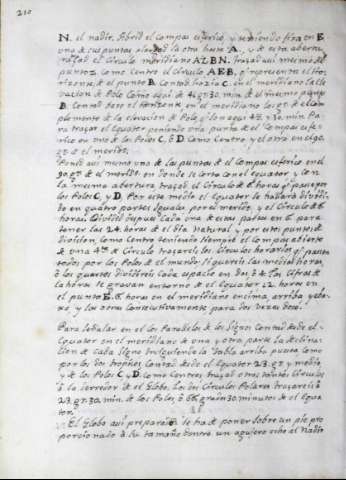 210
N. el nadir. Abrid el compas esferico y teniendo fixa en E
una de sus puntas alargad la otra hasta A. y de esta abertu
ra trazad el Circulo meridiano ALBN. trazad asi mismo del
punto Z como Centro el Circulo AEB. q representa el Ho
rizonte. del punto B Contad hacia C en el meridiano la Ele
vacion de Polo Como aqui de 41 gr. 30. min. del mismo punto
B Contad bajo el Horizonte en el meridiano los gr. de el com
plemento de la elevacion de Polo q son aqui 48. gr. 30. min. Pa
ra trazar el Equator poniendo una punta de el Compas esfe
rico en uno de los Polos C, ó D Como Centro y el otro en el 90.
gr. de el merid.
Poned asi mismo una de las puntas de el Compas esferico en el
90. gr. de el merid. en donde se corta con el Equator, y con
la misma abertura trazad el Circulo de 6 horas q pase por
los Polos C, y D. Por este medio el Equator se hallará dividi
do en quatro partes iguales por el merid. y el Circulo de 6
horas. Dividid despues Cada una de estas partes en 6 para
tener las 24. horas de el dia Natural y por estos puntos de
division, como Centro teniendo siempre el Compas abierto
de una 4ta de Circulo trazareis los circulos horarios q pasan
todos por los Polos de el mundo. Si quereis las medias horas
ó los quartos dividireis Cada espacio en dos, ó 4. Las Cifras de
la horas se gravan entorno de el Equator 12 horas en
el punto E. 6. horas en el meridiano encima, arriba y aba
xo, y las otras Consecutivamente para dos veces doce.
Para señalar en el los Paralelos de los Signos Contad desde el
Equator en el meridiano de una y otra parte la declina
cion de cada Signo siguiendo la Tabla arriba puesta Como
por los dos tropicos Contad desde el Equator 23. gr. y medio
y de los Polos C, y D como Centros, trazad otros tantos Circulos
á la derredor de el Globo. Los dos Circulos Polares trazareis á
23. gr. 30. min. de los Polos, ó 66. grad. 30. minutos de el Equa
tor.
El Globo asi preparado se ha de poner sobre un pie pro
porcionado á su tamaño dentro un agujero echo al Nadir